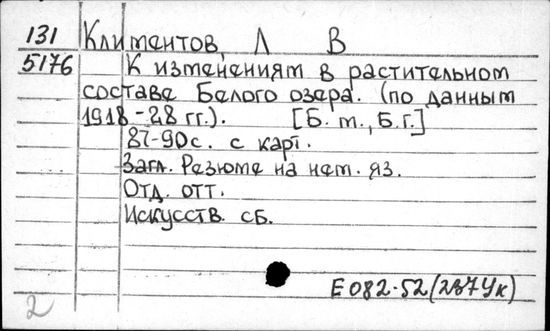 131 Климентов Л В
5176 К изменениям в растительном
составе Белого озера. (по данным
1918-28 гг.). [Б. м., Б.г.]
87-90с. с карт.
Загл. Резюме на нем. яз.
Отд. отт.
Искусств. сб.
Е082-52(237Ук)
2